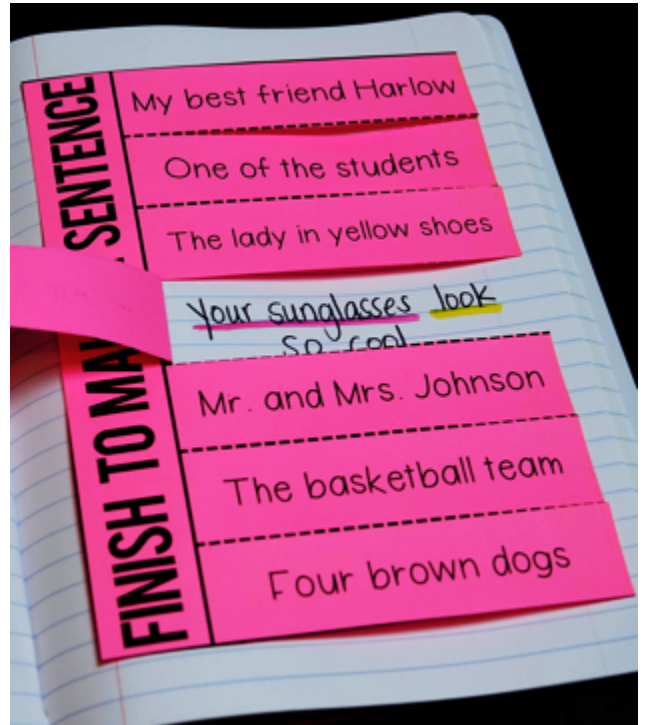 FINISH TO MA SENTENCE
My best friend Harlow
One of the students
The lady in yellow shoes
Your sunglasses look
so cool
Mr. and Mrs. Johnson
The basketball team
Four brown dogs